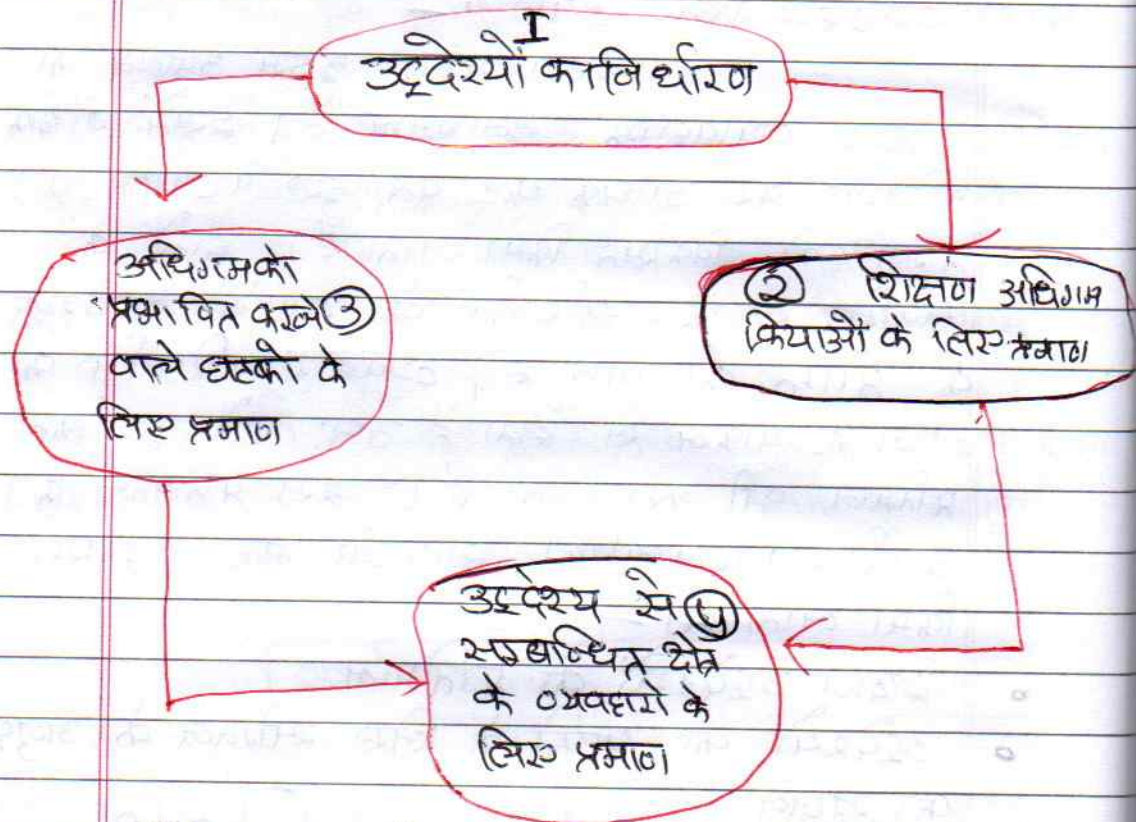 I
उद्देश्यों का निर्धारण
अधिगम को
प्रभावित करने ③
वाले घटको के
लिए प्रमाण
② शिक्षण अधिगम
क्रियाओं के लिए प्रमाण
उद्देश्य से ④
सम्बन्धित क्षेत्र
के व्यवहारो के
लिए प्रमाण